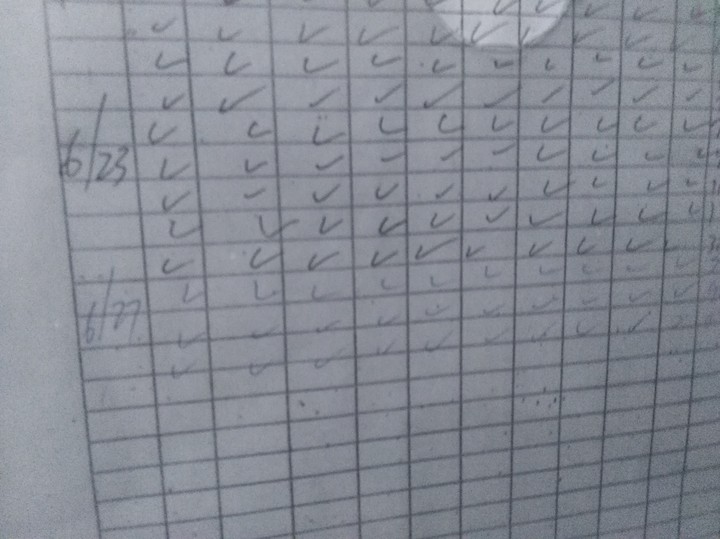 6/23
6/27